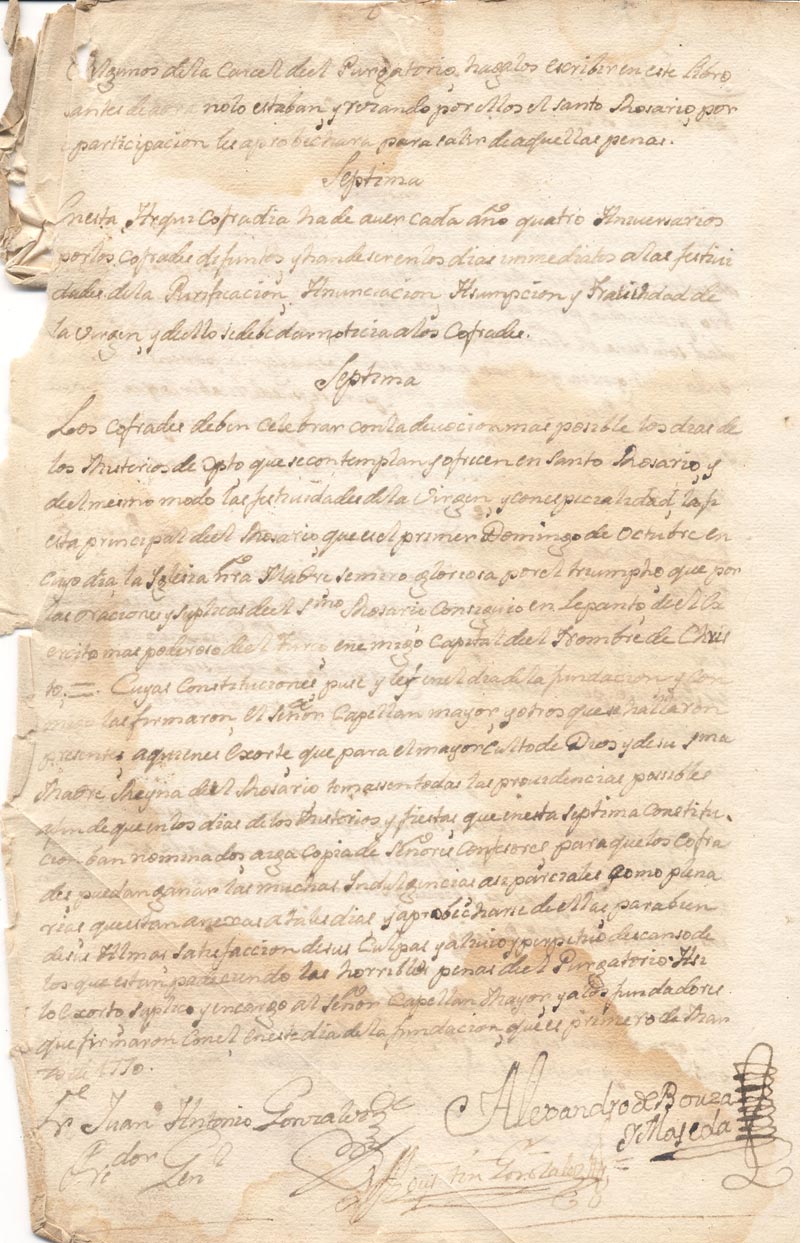 Algunos de la Carcel de el Purgatorio, hagalos escribir en este libro,
antes de aora no lo estaban, y rezando por ellos el santo Rosario, por
participacion les aprobechara para salir de aquellas penas.
Septima
En esta Arqui Cofradia ha de auer cada año quatro Aniversarios
por los Cofrades difuntos y han de ser en los dias immediatos a las festiui
dades de la Purificacion, Anunciacion, Asumpcion y Natiuidad de
la Virgen, y de ello se debe dar noticia a los Cofrades.
Septima
Los Cofrades deben Celebrar con la deuocion mas posible los dias de
los Misterios de Xpto que se contemplan y ofrecen en Santo Rosario, y
de el mesmo modo las festiuidades de la Virgen, y con especialidad, la fi
esta principal de el Rosario que es el primer Domingo de Octubre en
cuyo dia la Iglesia nra Madre se miro gloriosa por el triumpho que por
las oraciones y suplicas de el Smo Rosario Consiguio en Lepanto, de el Ex
ercito mas poderoso de el Turco enemigo Capital de el Nombre de Chris
to. = Cuyas Constituciones puse y ley en el dia de la fundacion y con
migo las firmaron el Señor Capellan mayor y otros que se hallaron
presentes a quienes exorte que para el mayor Culto de Dios y de su Sma
Madre Reyna de el Rosario tomassen todas las prouidencias possibles
afin de que en los dias de los Misterios y fiestas que en esta septima Constitu-
cion ban nominados aiga Copia de Señores Confesores para que los Cofra
des puedan ganar las muchas Indulgencias asi parciales como plena
rias que estan anexas a tales dias y aprobecharse de ellas para bien
de sus Almas satisfaccion de sus Culpas y aliuio y perpetuo descanso de
los que estan padeciendo las horribles penas de el Purgatorio. Asi
lo Exorto suplico y encargo al Señor Capellan Mayor y a los fundadores
que firmaron en este dia de la fundacion que es primero de Mar
zo de 1770.
Fr. Juan Antonio Gonzalez
Alexandro de Bouza
y Maseda
Pre dor Gen l
Agustin Gonzalez